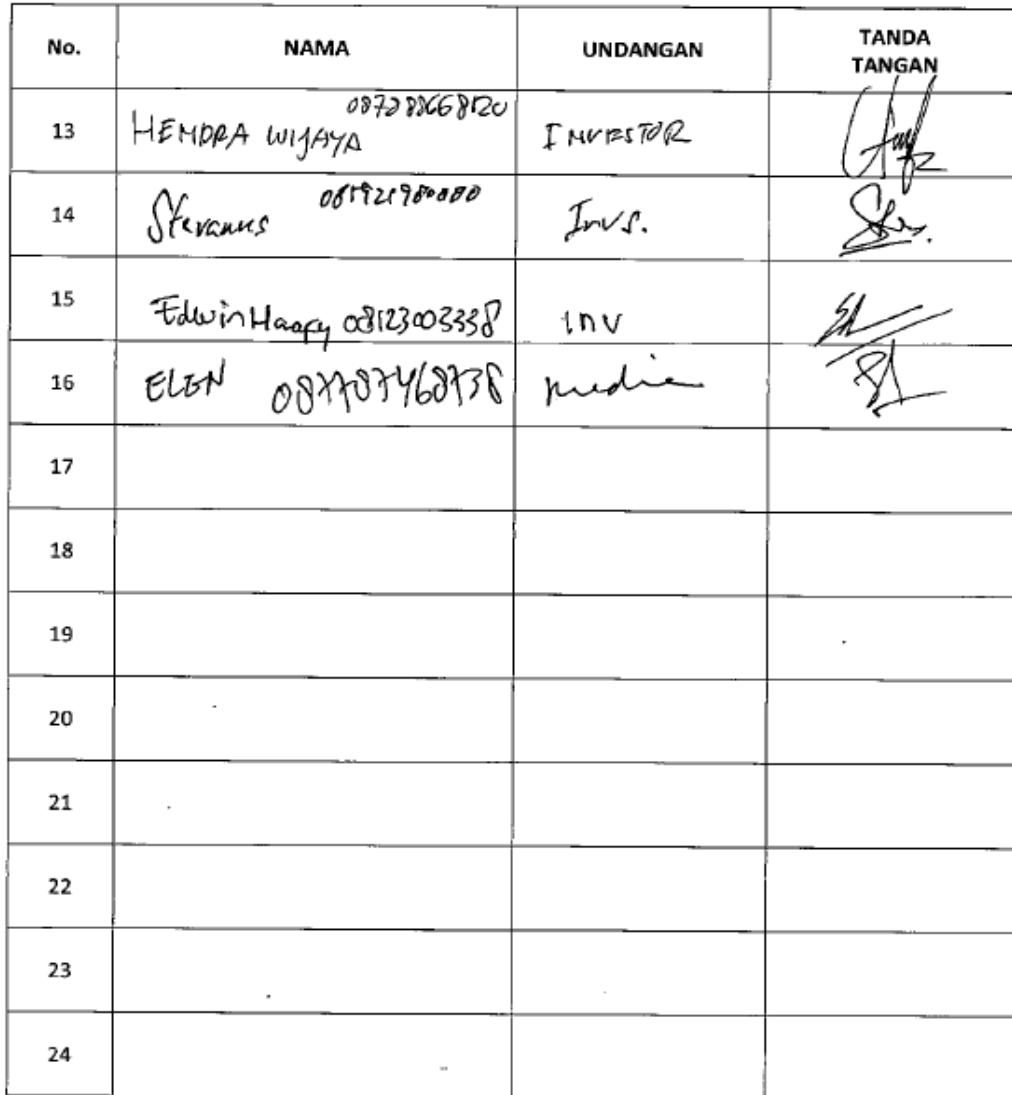 No. NAMA UNDANGAN TANDA TANGAN
13 HENDRA WIJAYA INVESTOR
14 Stevanus Invs.
15 Edwin 08123003338 inv
16 ELEN 087787468738 media
17
18
19
20
21
22
23
24